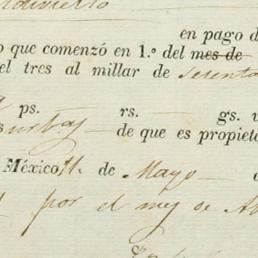 en pago d
o que comenzó en 1.º del mes de
el tres al millar de sesenta
ps. rs. gs. v
urbas de que es propiet
México 11 de Mayo
por el mes de Ab